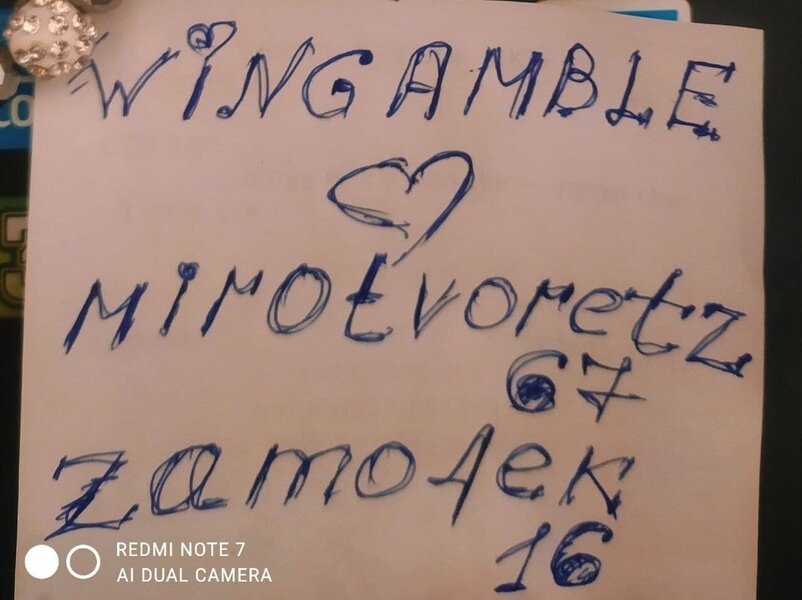 WiNGAMBLE
mirotvoretz
67
zamo4ek
16
REDMI NOTE 7
AI DUAL CAMERA